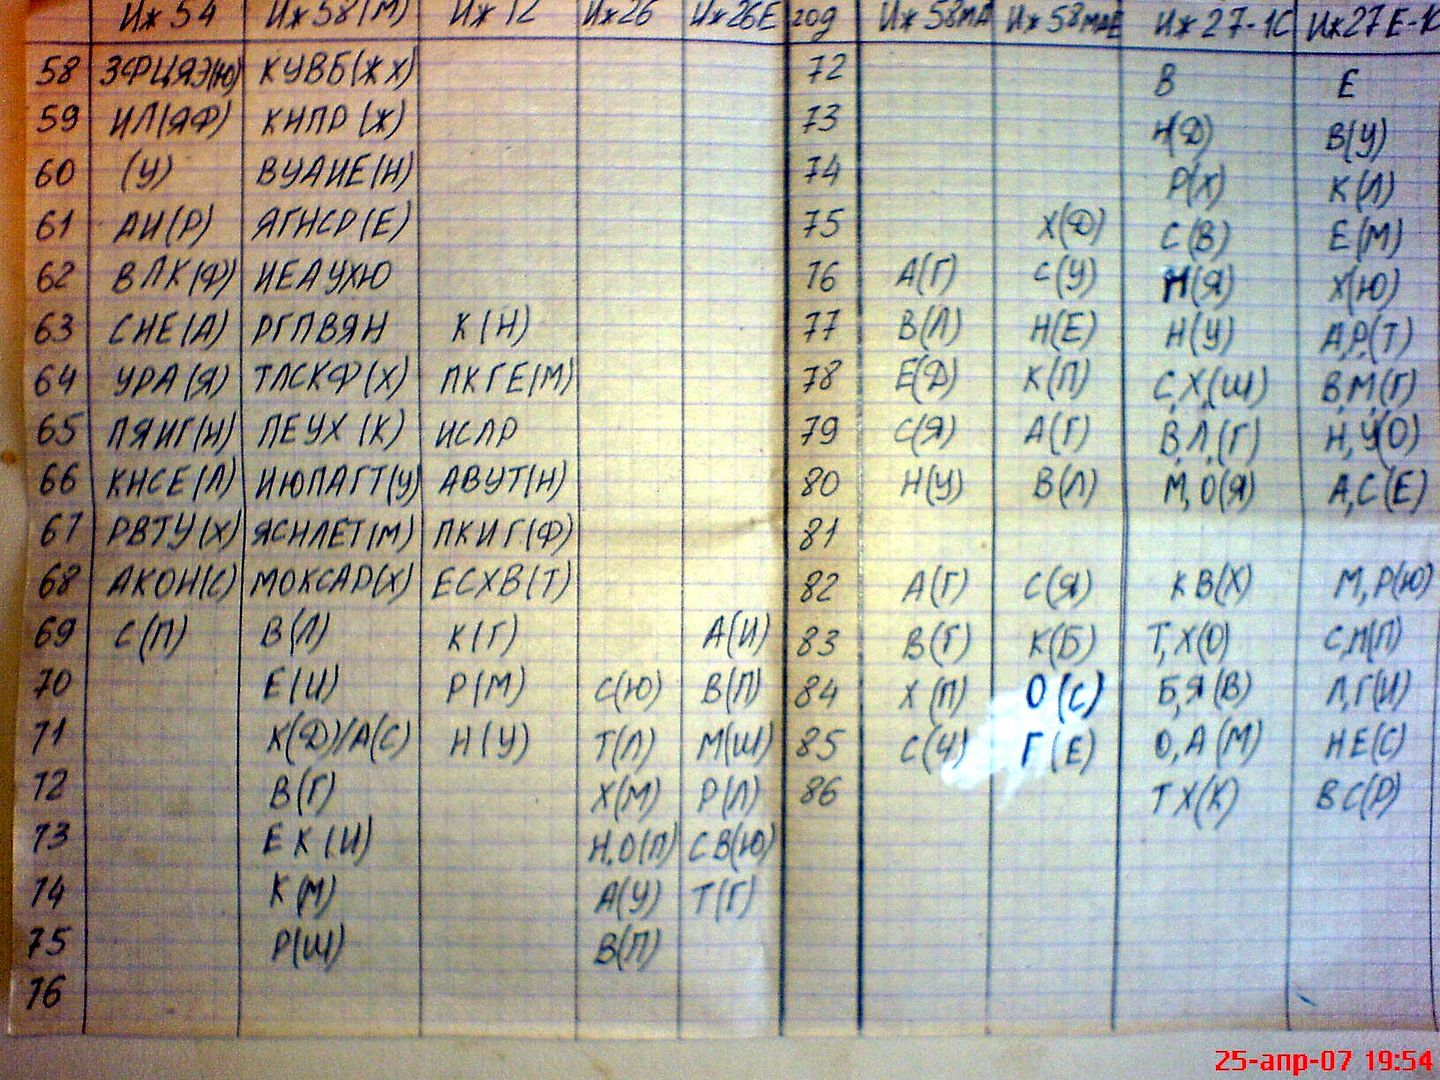 Иж 54 Иж 58(М) Иж 12 Иж 26 Иж 26Е год Иж 58МА Иж 58МАЕ Иж 27-1С Иж 27Е-1С
58 ЗФЦЯЭ(Ю) КУВБ(ЖХ) 72 В Е
59 ИЛ(ЯФ) КНПР(Ж) 73 Н(Д) В(У)
60 (У) ВУАИЕ(Н) 74 Р(Х) К(Л)
61 АИ(Р) ЯГНСР(Е) 75 Х(Д) С(В) Е(М)
62 ВЛК(Ф) ИЕАУХЮ 76 А(Г) С(У) Н(Я) Х(Ю)
63 СНЕ(А) РГПВЯН К(Н) 77 В(Л) Н(Е) Н(У) А,Р,(Т)
64 УРА(Я) ТЛСКФ(Х) ПКГЕ(М) 78 Е(Д) К(П) С,Х,(Ш) В,М,(Г)
65 ПЯИГ(Н) ПЕУХ(К) ИСЛР 79 С(Я) А(Г) В,Л,(Г) Н,У(О)
66 КНСЕ(Л) ИЮПАГТ(У) АВУТ(Н) 80 Н(У) В(Л) М,О(Я) А,С(Е)
67 РВТУ(Х) ЯСНЛЕТ(М) ПКИГ(Ф) 81
68 АКОН(С) МОКСАР(Х) ЕСХВ(Т) 82 А(Г) С(Я) КВ(Х) М,Р(Ю)
69 С(П) В(Л) К(Г) А(И) 83 В(Г) К(Б) Т,Х(О) С,Н(П)
70 Е(И) Р(М) С(Ю) В(П) 84 Х(П) О(С) Б,Я(В) Л,Г(И)
71 Х(Д)/А(С) Н(У) Т(Л) М(Ш) 85 С(Ч) Г(Е) О,А(М) НЕ(С)
72 В(Г) Х(М) Р(Л) 86 ТХ(К) ВС(Р)
73 ЕХ(И) Н,О(П) СВ(Ю)
74 К(М) А(У) Т(Г)
75 Р(Ш) В(П)
76
25-апр-07 19:54